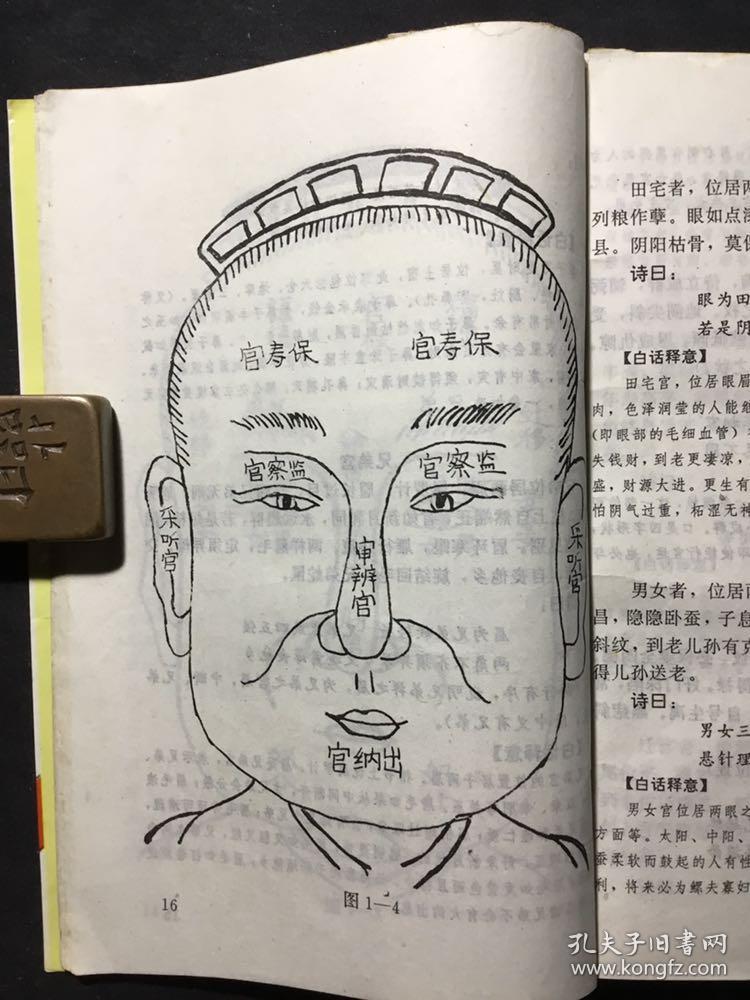 保寿官
保寿官
监察官
监察官
采听官
审辨官
采听官
出纳官
16
图1—4
田宅者，位居两
列粮作孽。眼如点漆
县。阴阳枯骨，莫保
诗曰：
眼为田
若是阴
【白话释意】
田宅宫，位居眼眉
肉，色泽润莹的人能继
（即眼部的毛细血管）
失钱财，到老更凄凉，
盛，财源大进。更生有
怕阴气过重，枯涩无神
男女者，位居两
昌，隐隐卧蚕，子息
斜纹，到老儿孙有克
得儿孙送老。
诗曰：
男女三
悬针理
【白话释意】
男女宫位居两眼之
方面等。太阳、中阳、
蚕柔软而鼓起的人有性
利，将来必为螺夫寡妇
孔夫子旧书网
www.kongfz.com